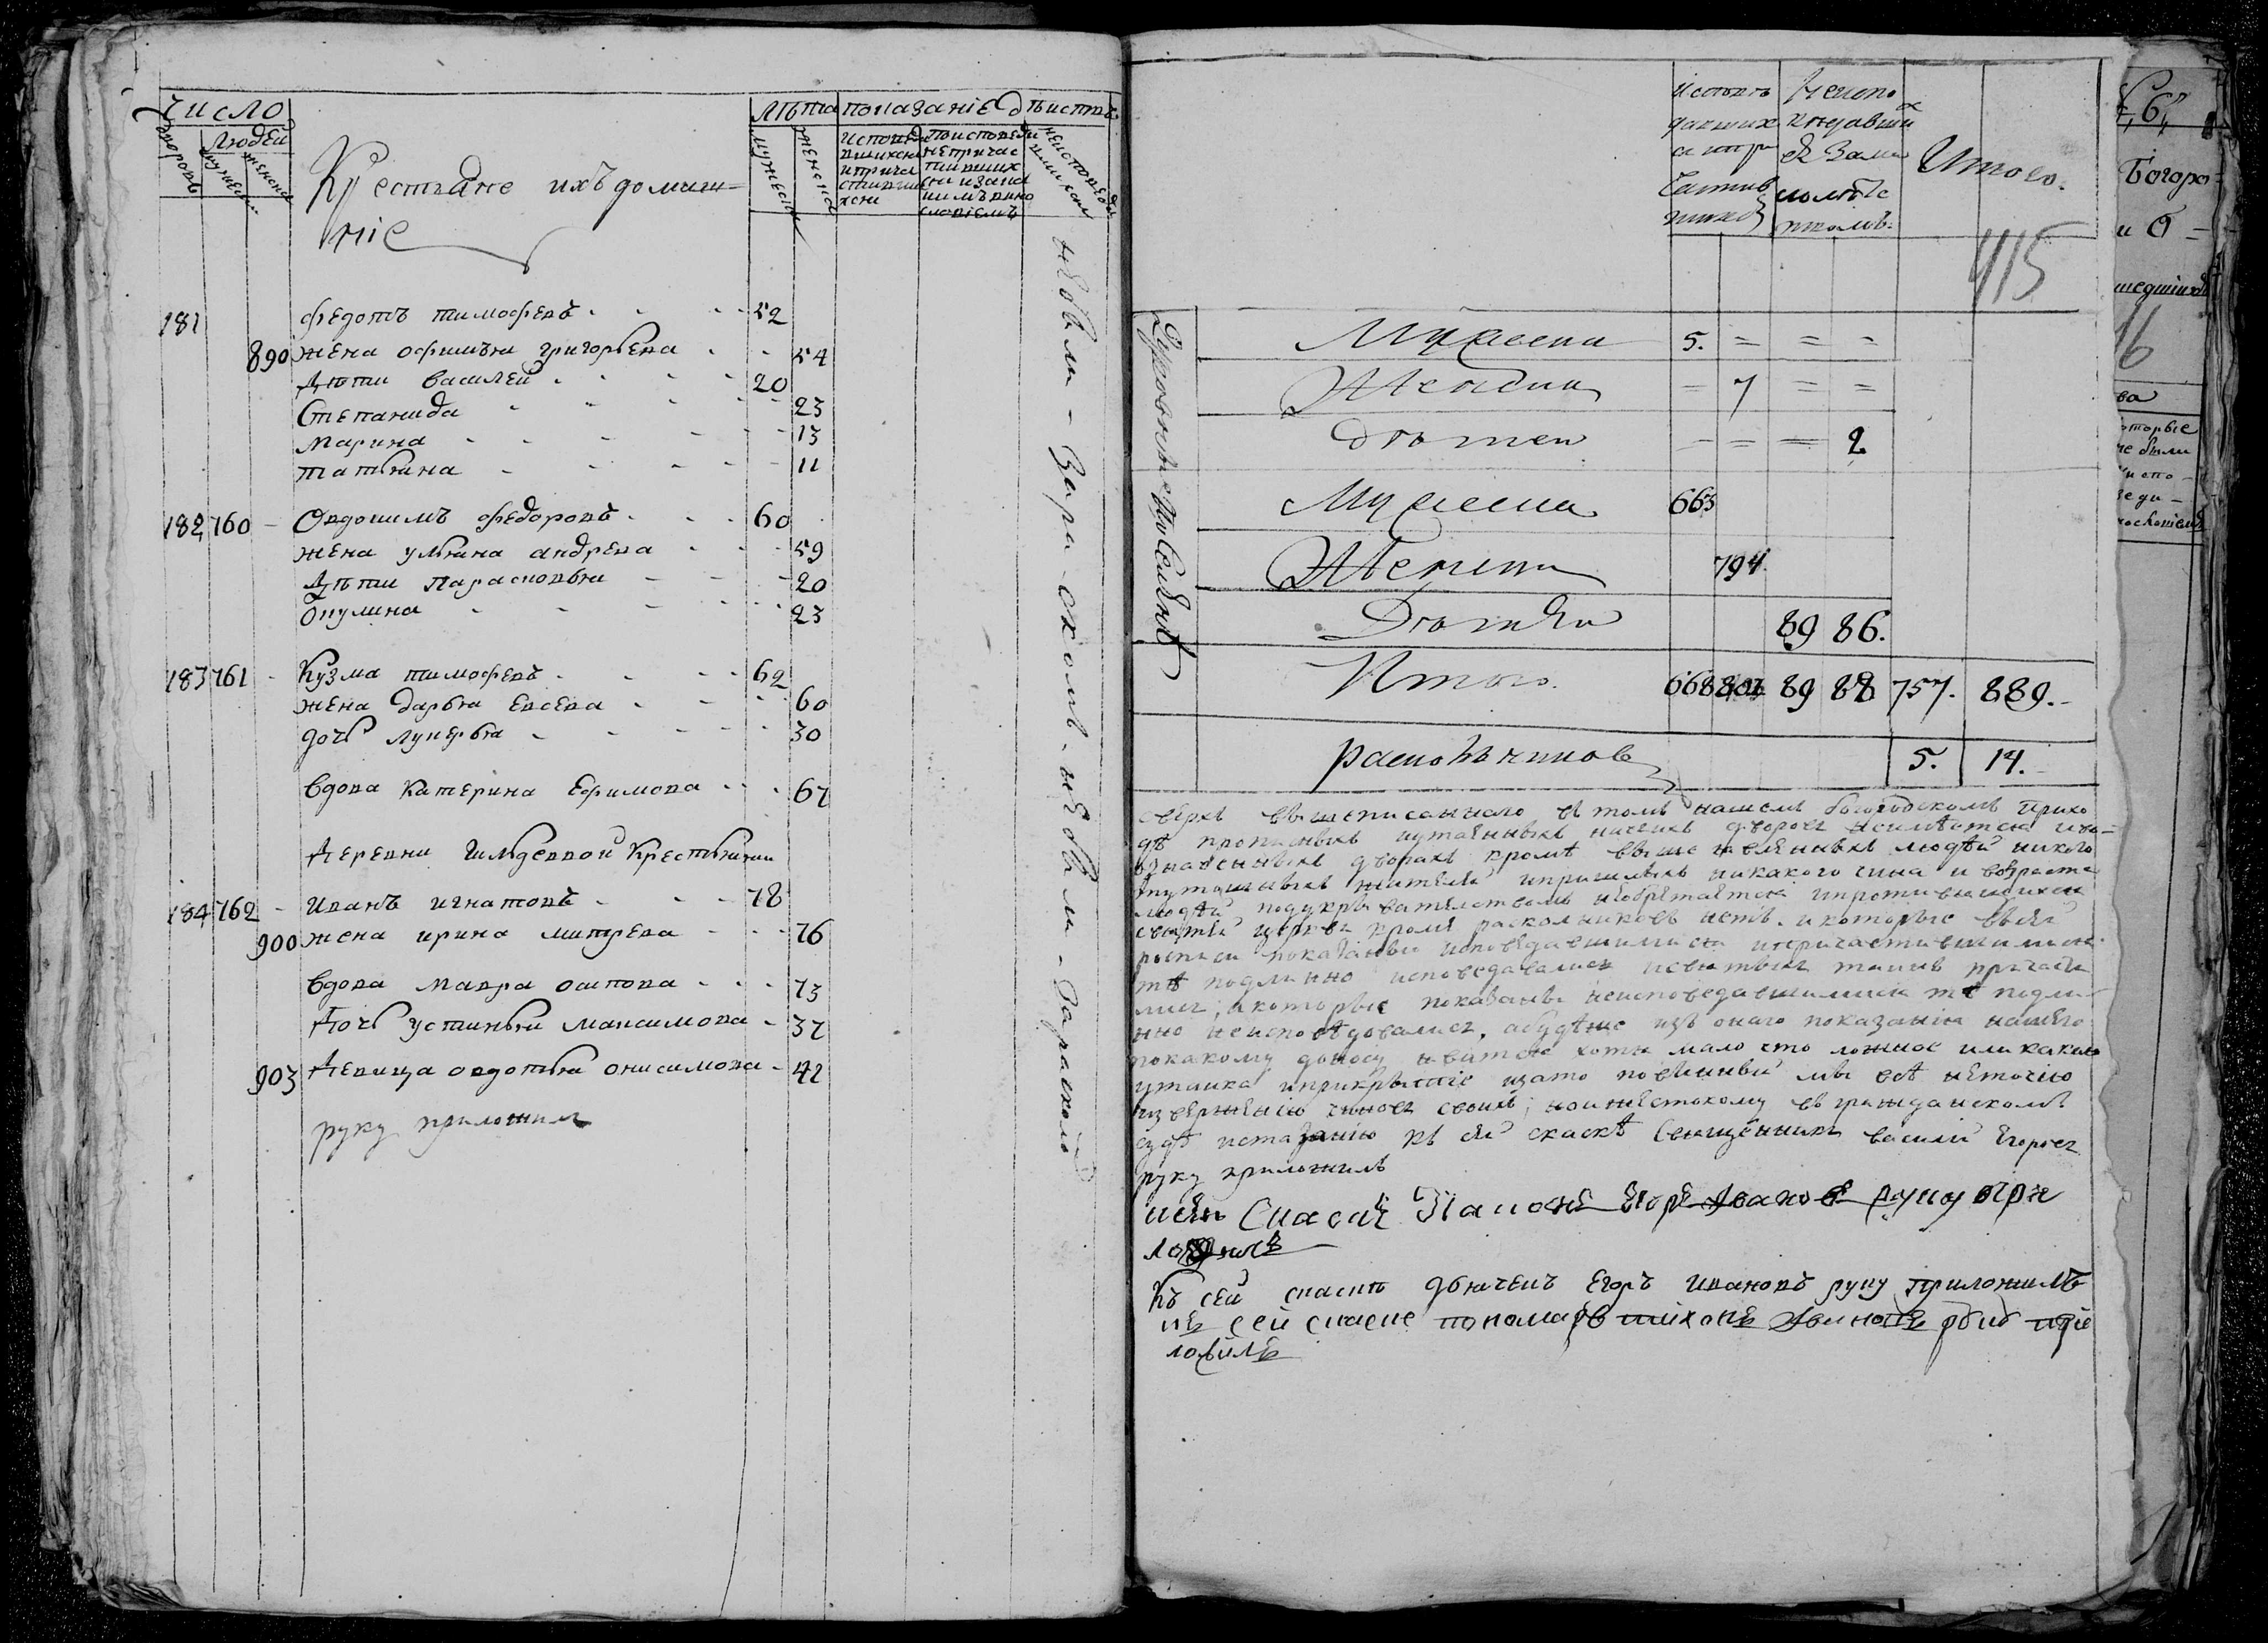 число
дворовъ
людей
мужеска
женска
Крестьяне ихъ домаш=
ніе
лѣта
мужеска
женска
показаніе дѣйства
исповѣ
давшихся
и причас
тившихся
исповѣда
непричас
тившихся
неисповѣда
вшихся
181 Федотъ тимофеевъ 52
890 жена офимья григорьева 54
дѣти василей 20
Степанида 23
Марина 13
татьяна 11
182 760 Овдокимъ федоровъ 60
жена ульяна андреева 59
дѣти парасковья 20
окулина 23
183 761 Кузма тимофеевъ 62
жена дарья евсева 60
дочь лукерья 30
вдова катерина Ефимова 67
деревни крестьяни
184 762 Иванъ игнатовъ 78
900 жена ирина митрева 76
вдова мавра осипова 73
дочь устинья максимова 37
903 девица овдотья онисимова 42
руку приложил
небыли - За расколомъ - небыли - За расколомъ
Исповѣ
давших
ся и при
частив
шихся
Неиспо
вѣдавших
ся за ма
лолѣтс
твомъ
Итого
415
Духовные
Мужеска 5. = = =
Женска = 7 = =
дѣтей - = = 2
Поселяне
Мужеска 663
Женска 794.
Дѣтей 89 86.
Итого 668 801 89 88 757. 889.
раскольников 5. 14.
сверхъ вышеписаннаго въ томъ нашемъ богородскомъ прихо
дѣ прописныхъ и утаеныхъ ничьихъ дворовъ неимѣется и во=
означеныхъ дворахъ кромѣ выше явленыхъ людей никого
жителей и пришлыхъ никакого чина и возраста
людей подукрывателствомъ необретается и противящихся
святей церкви кромѣ расколниковъ нетъ. и которые въ сей
росписи показаны исповѣдавшимися и причастившимися
тѣ подлинно исповедавались и святыхъ таинъ причасти
лись, а которые показаны неисповедавшимися тѣ подли
нно неисповѣдовались, а будеже изъ онаго показанія нашего
по какому доносу явится хотя мало что ложное или какая
утайка и прикрытіе и зато повинны мы всѣ неточію
изверженію чиновъ своихъ, но и жестокому въ гражданскомъ
судѣ истязанію къ сей скаскѣ Священникъ василий Егоровъ
руку приложилъ
руку при
ложилъ
Къ сей скаске дьячекъ Егоръ ивановъ руку приложилъ
къ сей скаске пономарь тихонъ руку при
ложилъ
Богоро=
и О =
шедшихъ
16
ва
оторые
не были
испо -
веди -